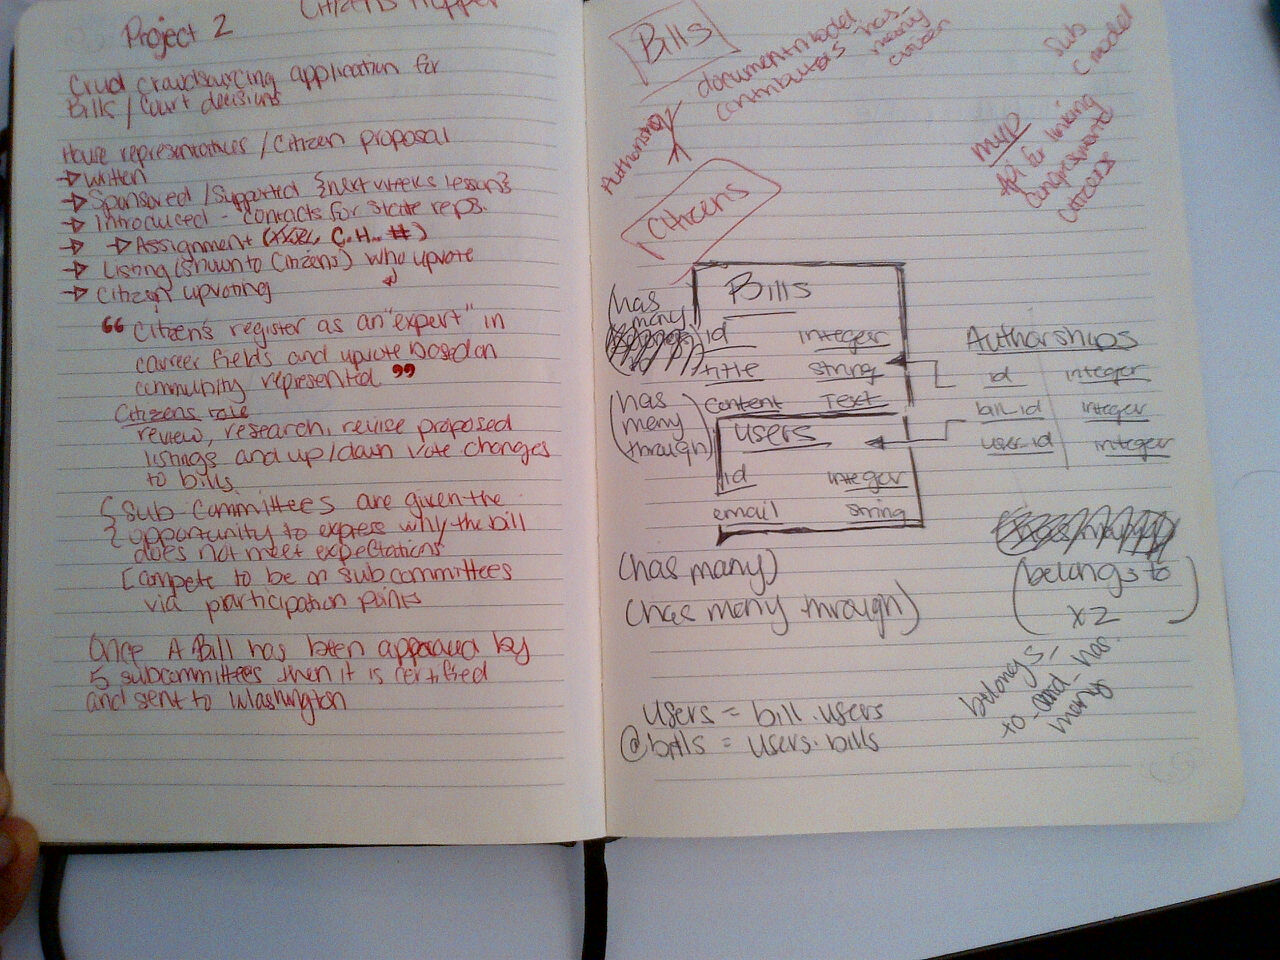 Project 2
Crud craudsourcing application for
Bills / Court decisions
House representatives / Citizen proposal
→ written
→ Sponsored / Supported {next weeks lesson}
→ Introduced - Contacts for state reps.
→ → Assignment ( C.H.. #)
→ Listing (shown to Citizens) who upvote
→ Citizen upvoting
“ Citizens register as an "expert" in
career fields and upvote based on
community represented ”
Citizens role
review, research, revise proposed
listings and up/down vote changes
to bills.
{ Sub committees are given the
opportunity to express why the bill
does not meet expectations
[ compete to be on subcommittees
via participation points
Once A Bill has been approved by
5 subcommittees then it is certified
and sent to Washington
Bills
document model
contributors has-
many
Authorship
Citizens
Sub
model
MVP
API for linking
congressmen
citizens
Bills
(has
many)
id integer
title string
content Text
(has
many
through)
Users
id integer
email string
Authorships
id integer
bill_id integer
user_id integer
(has many)
(has many through)
(belongs to
x2)
belongs-
to-and-has-
many
Users = bill.users
@bills = users.bills